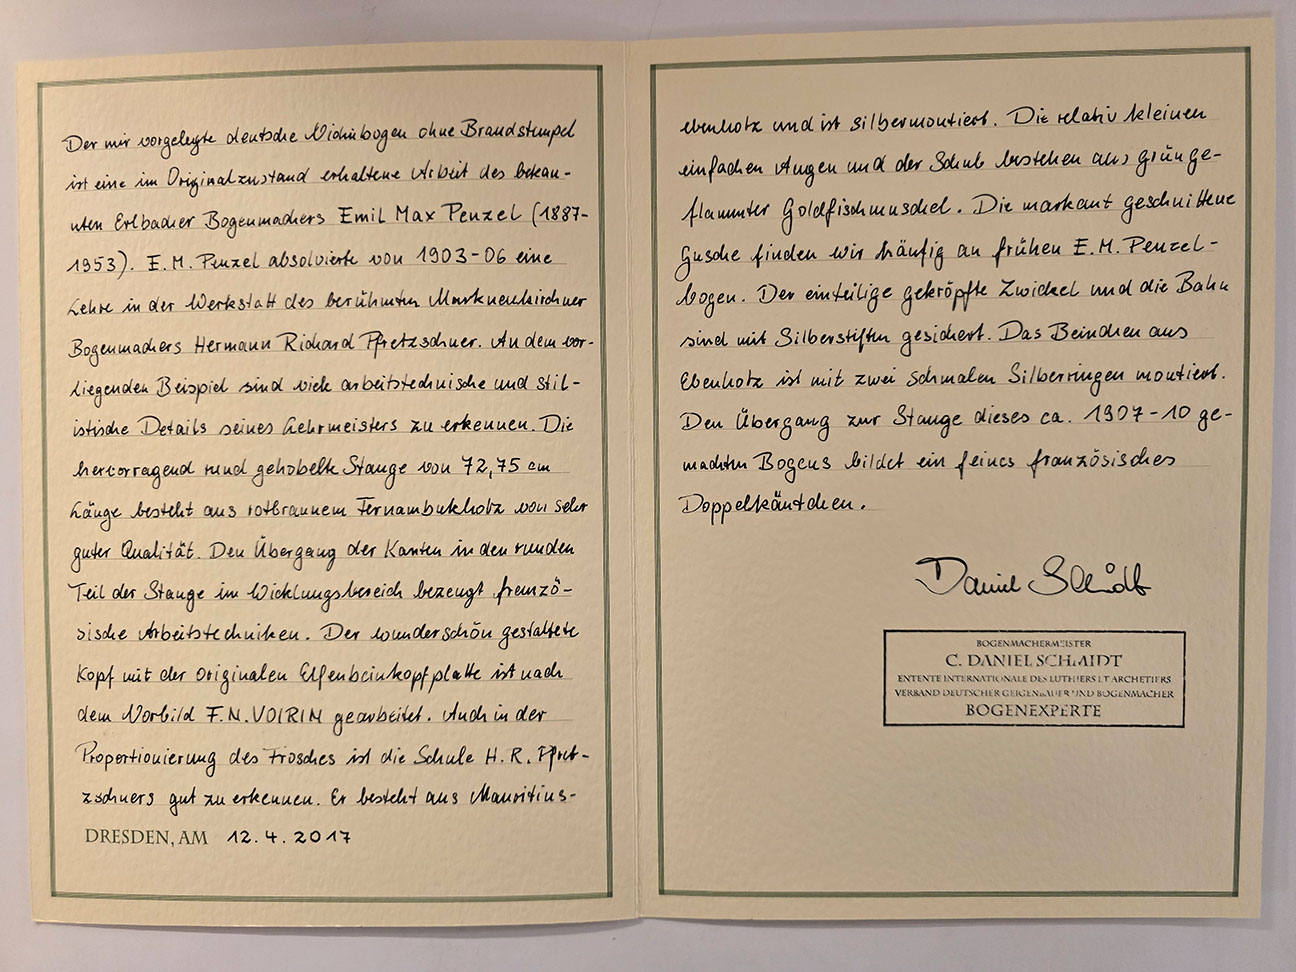 Der mir vorgelegte deutsche Violinbogen ohne Brandstempel
ist eine im Originalzustand erhaltene Arbeit des bekan-
nten Erlbacher Bogenmachers Emil Max Penzel (1887-
1953). E.M. Penzel absolvierte von 1903-06 eine
Lehre in der Werkstatt des berühmten Markneukirchner
Bogenmachers Hermann Richard Pfretzschner. An dem vor-
liegenden Beispiel sind viele arbeitstechnische und stil-
istische Details seines Lehrmeisters zu erkennen. Die
hervorragend rund gehobelte Stange von 72,75 cm
Länge besteht aus rotbraunem Fernambukholz von sehr
guter Qualität. Den Übergang der Kanten in den runden
Teil der Stange im Wicklungsbereich bezeugt franzö-
sische Arbeitstechniken. Der wunderschön gestaltete
Kopf mit der originalen Elfenbeinkopfplatte ist nach
dem Vorbild F.N. VOIRIN gearbeitet. Auch in der
Proportionierung des Frosches ist die Schule H.R. Pfret-
zschners gut zu erkennen. Er besteht aus Mauritius-
DRESDEN, AM 12.4.2017
ebenholz und ist silbermontiert. Die relativ kleinen
einfachen Augen und der Schub bestehen aus grünge-
flammter Goldfischmuschel. Die markant geschnittene
Gusche finden wir häufig an frühen E.M. Penzel-
bogen. Der einteilige gekröpfte Zwickel und die Bahn
sind mit Silberstiften gesichert. Das Beinchen aus
Ebenholz ist mit zwei schmalen Silberringen montiert.
Den Übergang zur Stange dieses ca. 1907-10 ge-
machten Bogens bildet ein feines französisches
Doppelkäntchen.
Daniel Schmidt
BOGENMACHERMEISTER
C. DANIEL SCHMIDT
ENTENTE INTERNATIONALE DES LUTHIERS ET ARCHETIERS
VERBAND DEUTSCHER GEIGENBAUER UND BOGENMACHER
BOGENEXPERTE